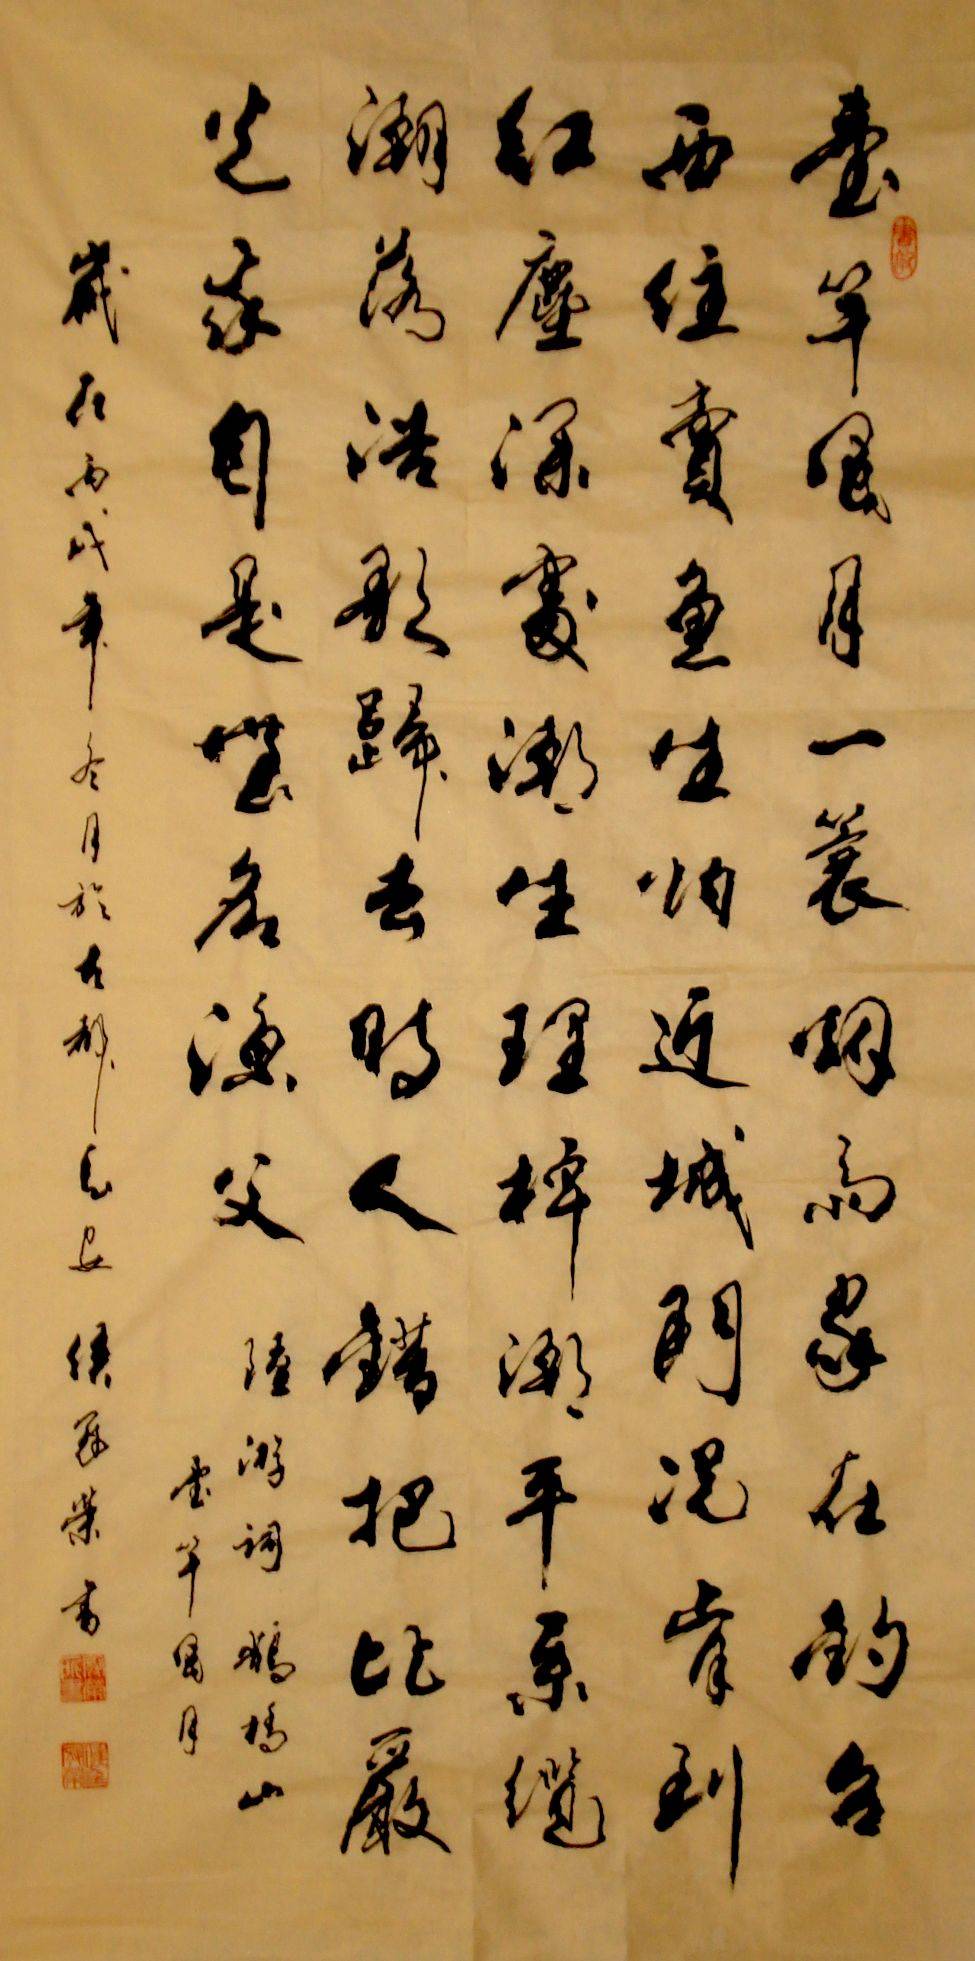 壹竿風月一蓑烟雨家在釣台
西住賣魚生怕近城門況肯到
紅塵深處潮生理棹潮平系纜
潮落浩歌歸去時人錯把比嚴
光我自是無名漁父
陸游詞鵲橋仙
壹竿風月
歲在丙戌年冬月於古都長安 侯榮書